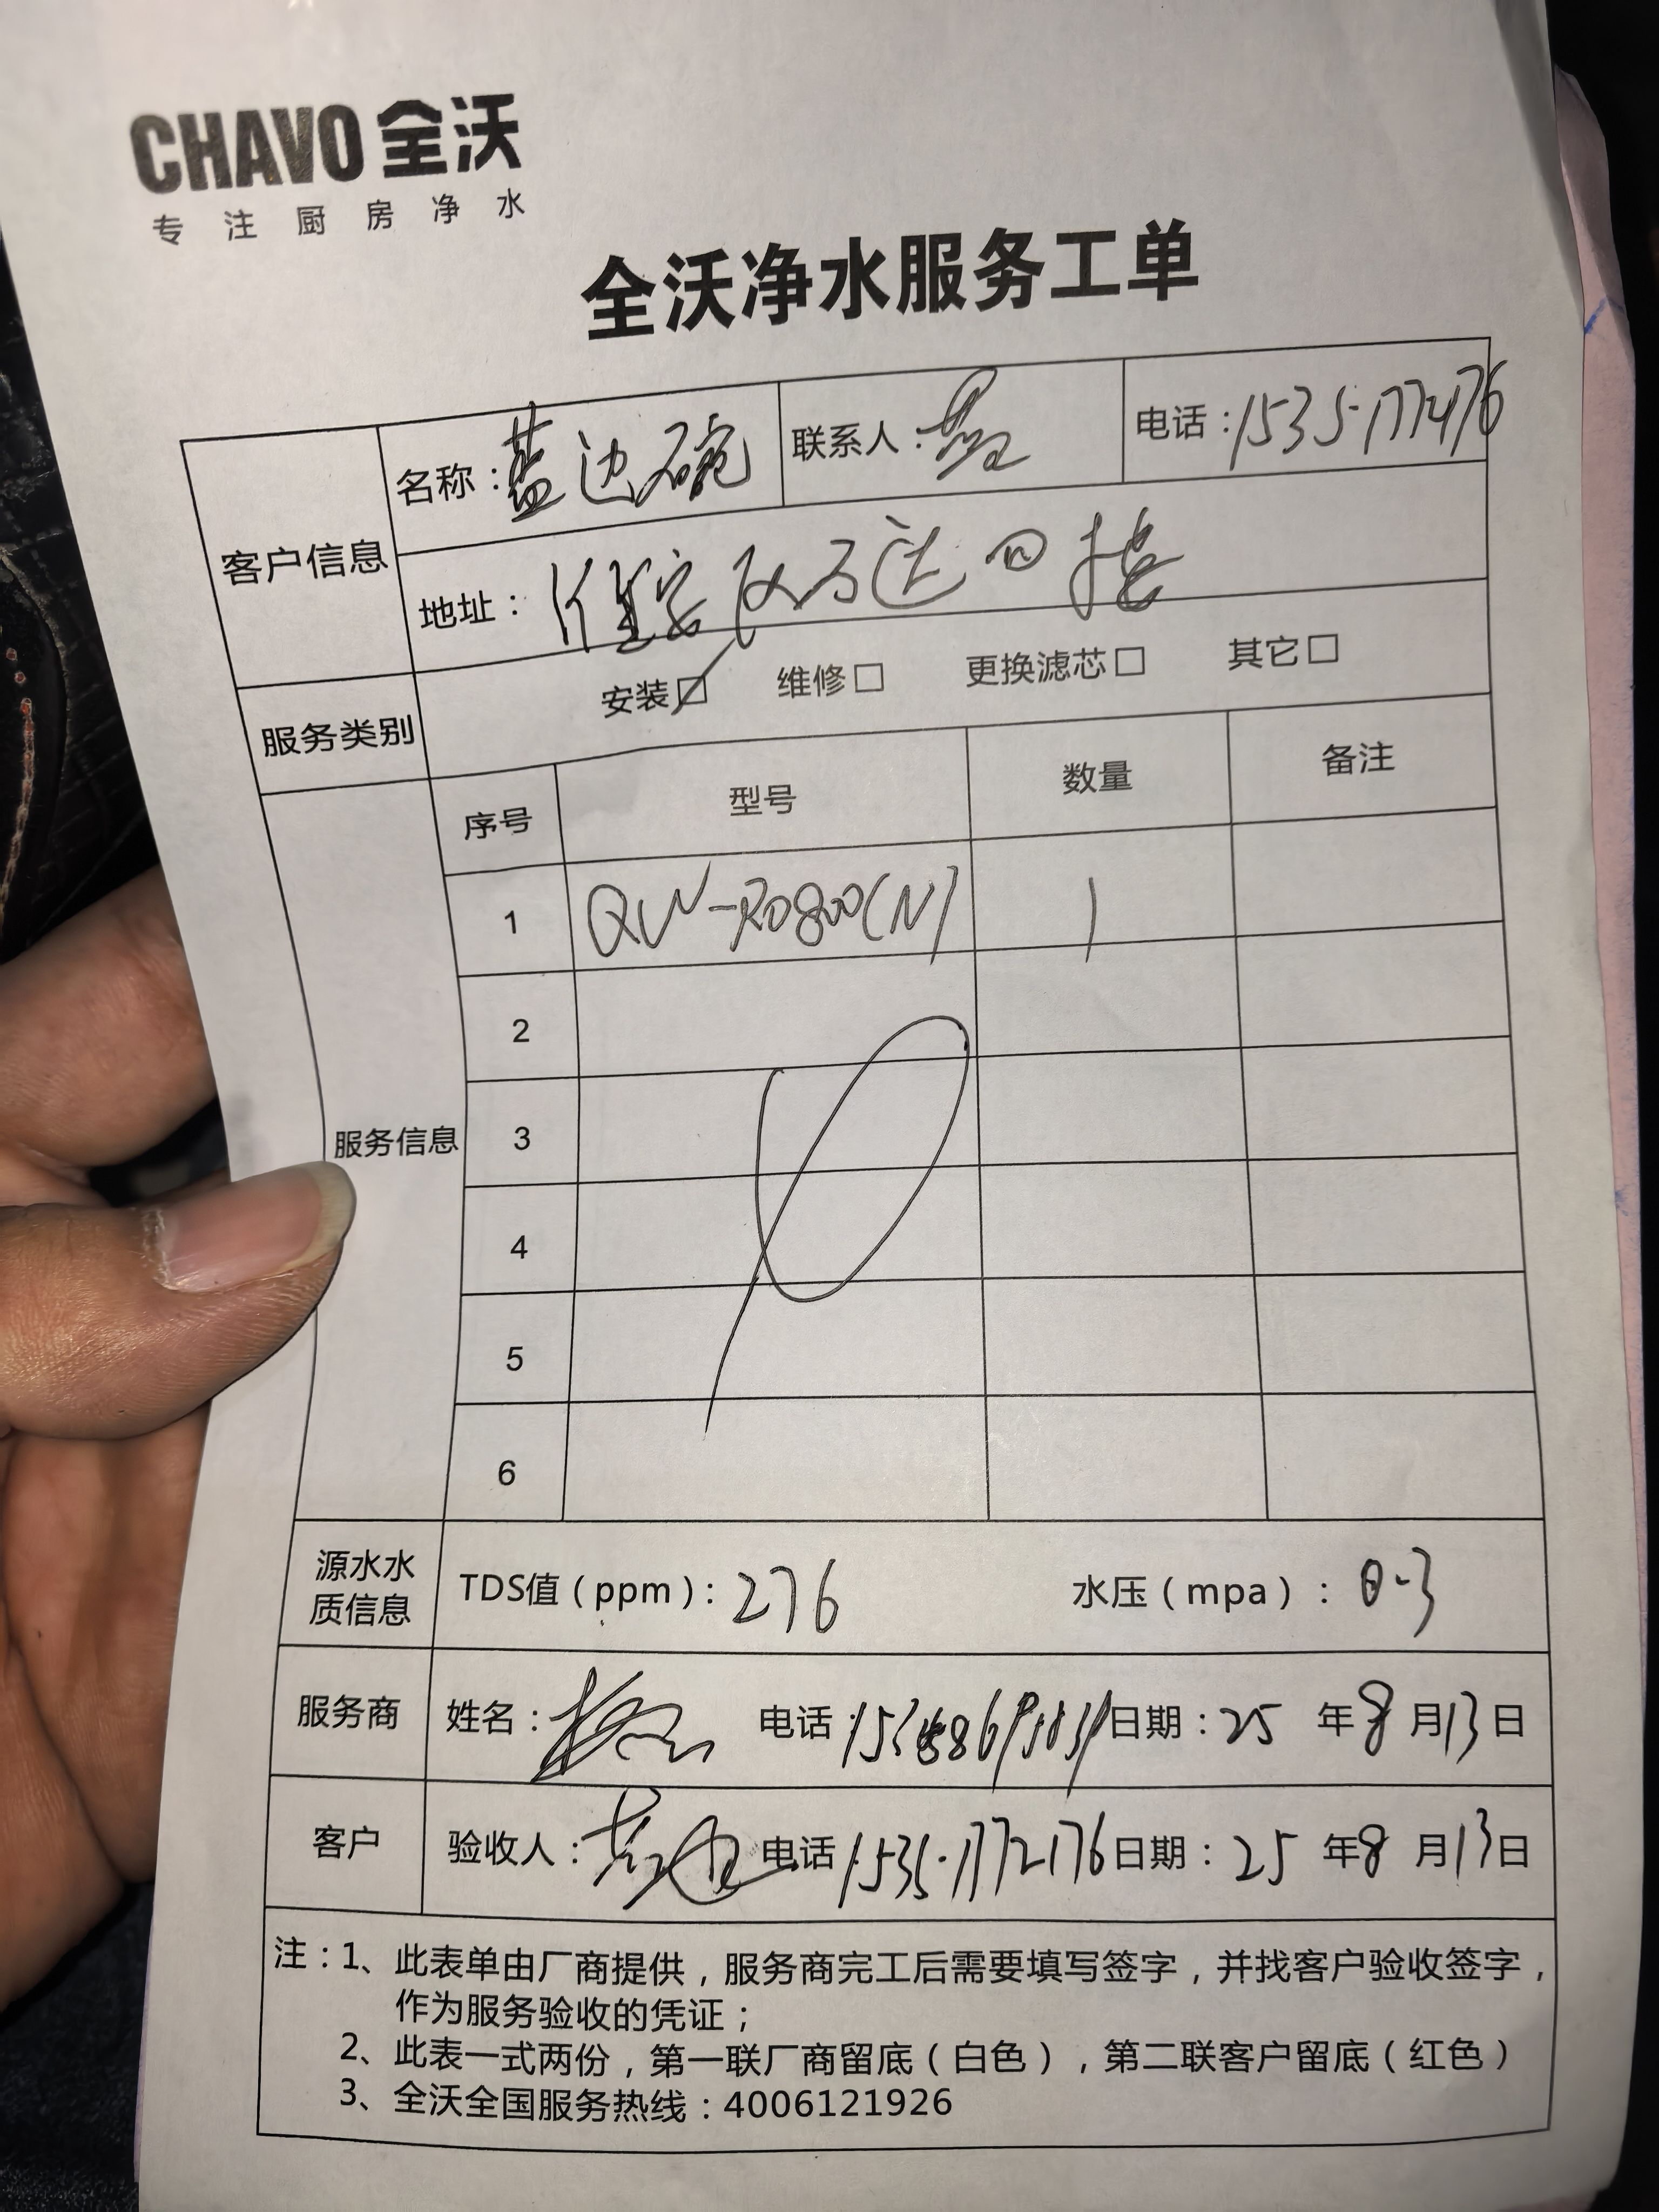 CHAVO 全沃
专注厨房净水
全沃净水服务工单
客户信息
名称：蓝边碗
联系人：
电话：1535
地址：淮安 万达 四楼
服务类别
安装☑ 维修□ 更换滤芯□ 其它□
服务信息
序号 型号 数量 备注
1 QW-RO800(N) 1
2
3
4
5
6
源水水质信息
TDS值（ppm）：276 水压（mpa）：0.3
服务商 姓名： 电话： 日期：25 年 8 月 13 日
客户 验收人： 电话：15351772176 日期：25 年 8 月 13 日
注：1、此表单由厂商提供，服务商完工后需要填写签字，并找客户验收签字，
作为服务验收的凭证；
2、此表一式两份，第一联厂商留底（白色），第二联客户留底（红色）
3、全沃全国服务热线：4006121926